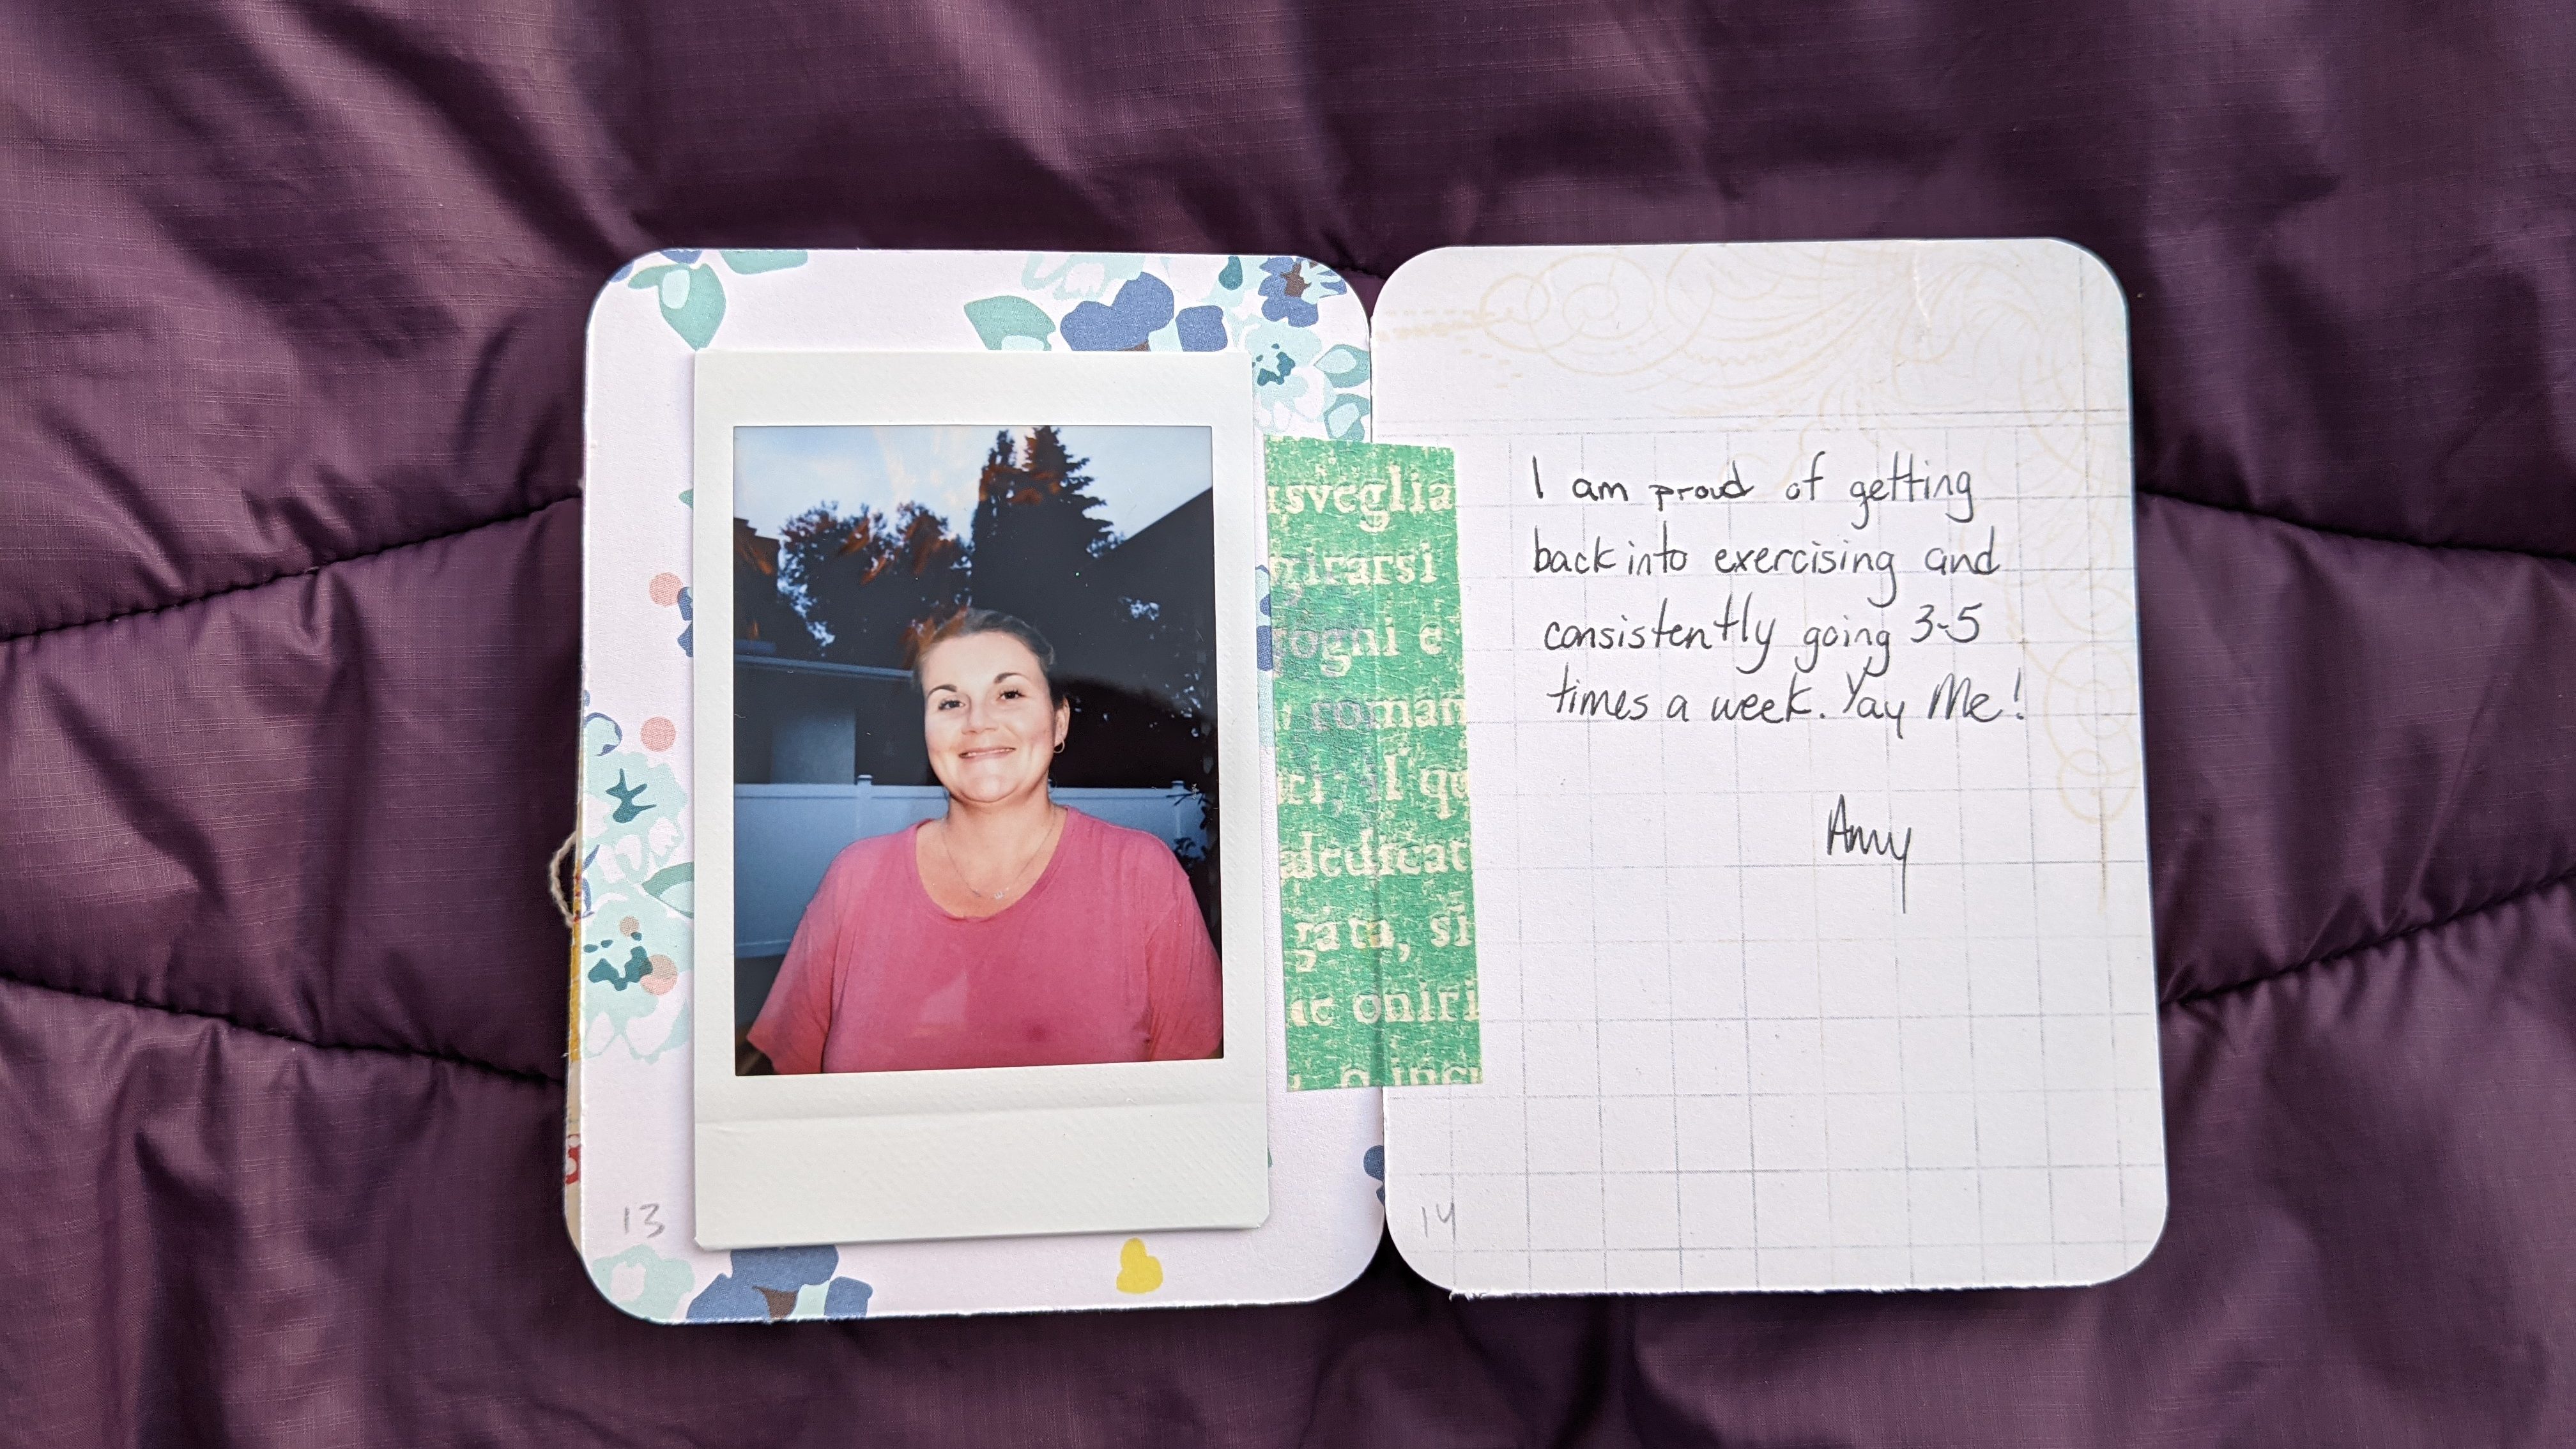 isveglia
mirarsi
gogni e
roman
ri; I qu
adedicat
rata, si
ae oniri
I am proud of getting
back into exercising and
consistently going 3-5
times a week. Yay Me!
Amy
13
14